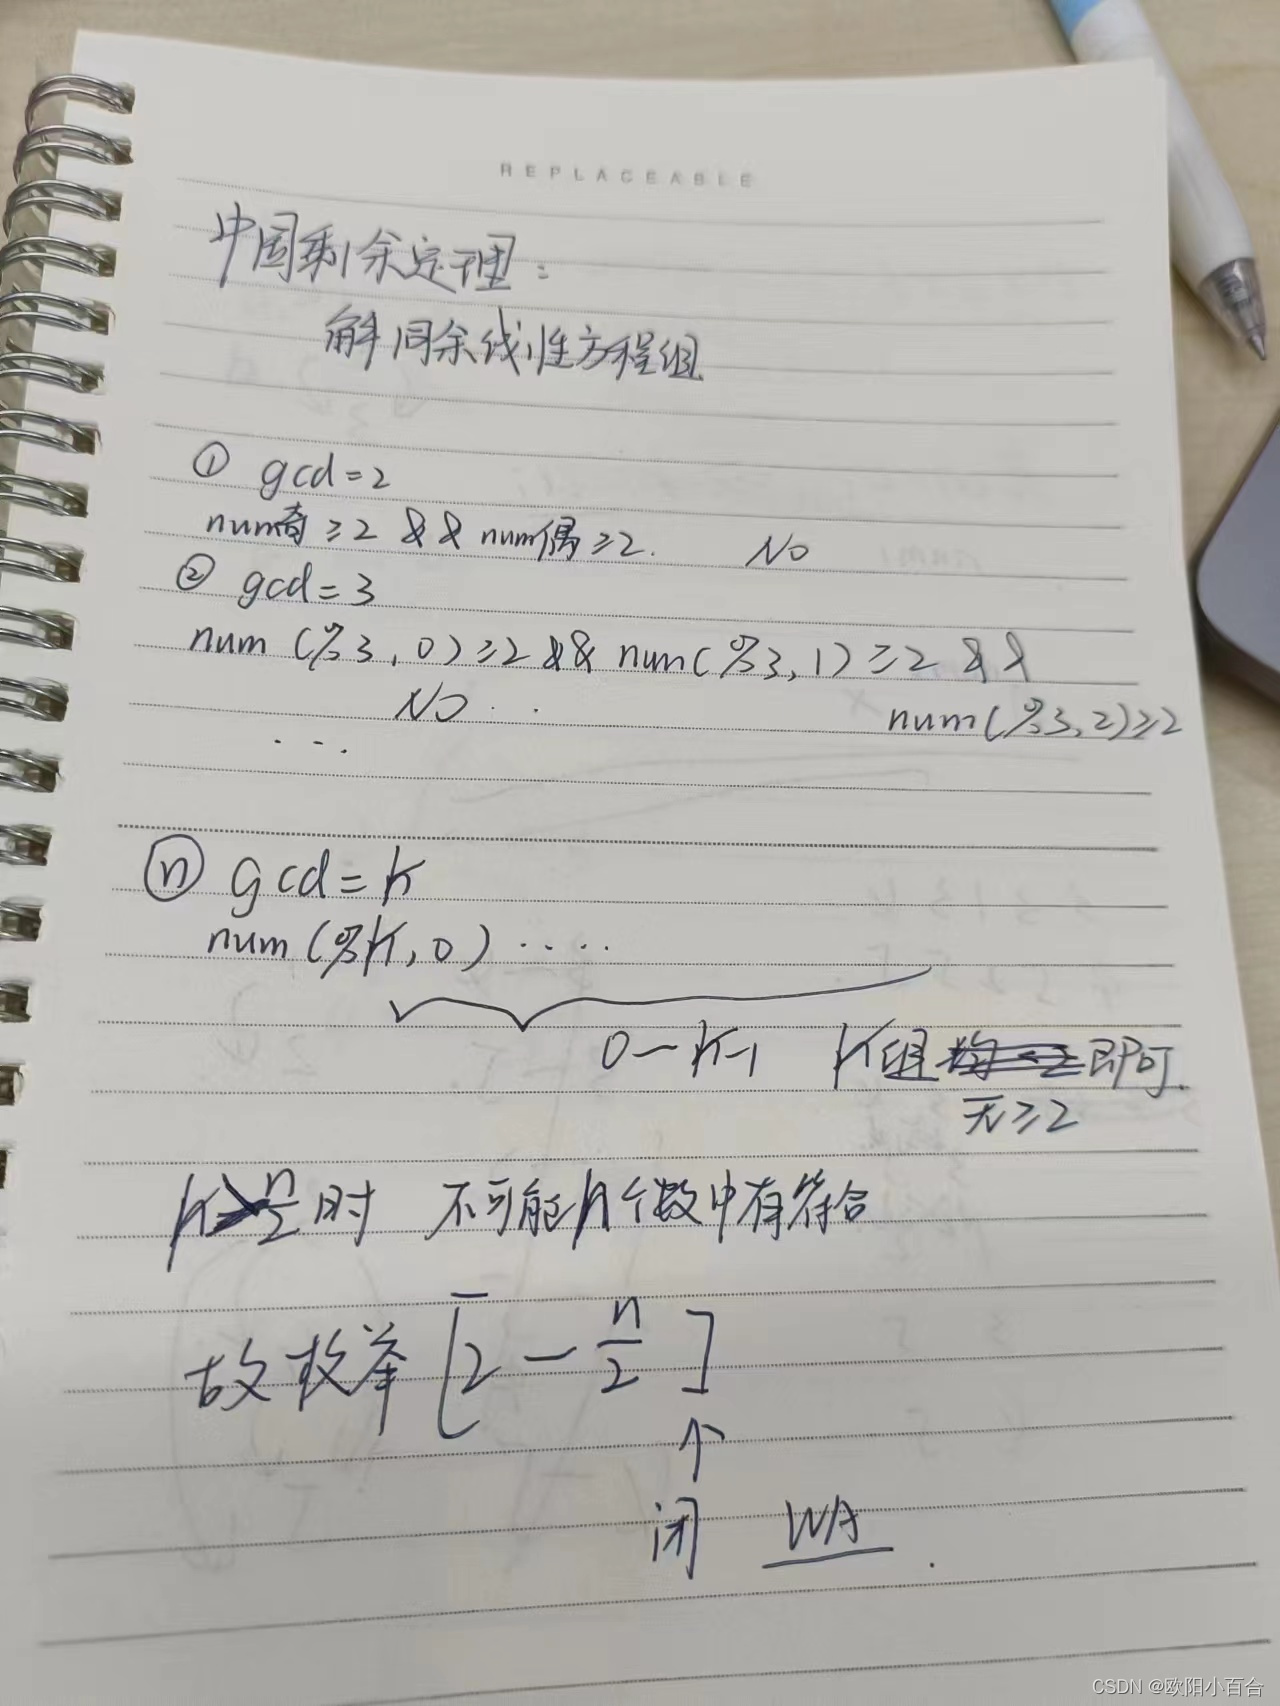 REPLACEABLE
中国剩余定理：
解同余线性方程组
① gcd=2
num奇≥2 && num偶≥2. NO
② gcd=3
num(%3,0)≥2 && num(%3,1)≥2 &&
num(%3,2)≥2
NO..
...
ⓝ gcd=K
num(%K,0)....
0—K-1 K组 即可.
无≥2
K>n/2时 不可能n个数中有符合
故枚举[2—n/2]
↑
闭 WA.
CSDN @欧阳小百合